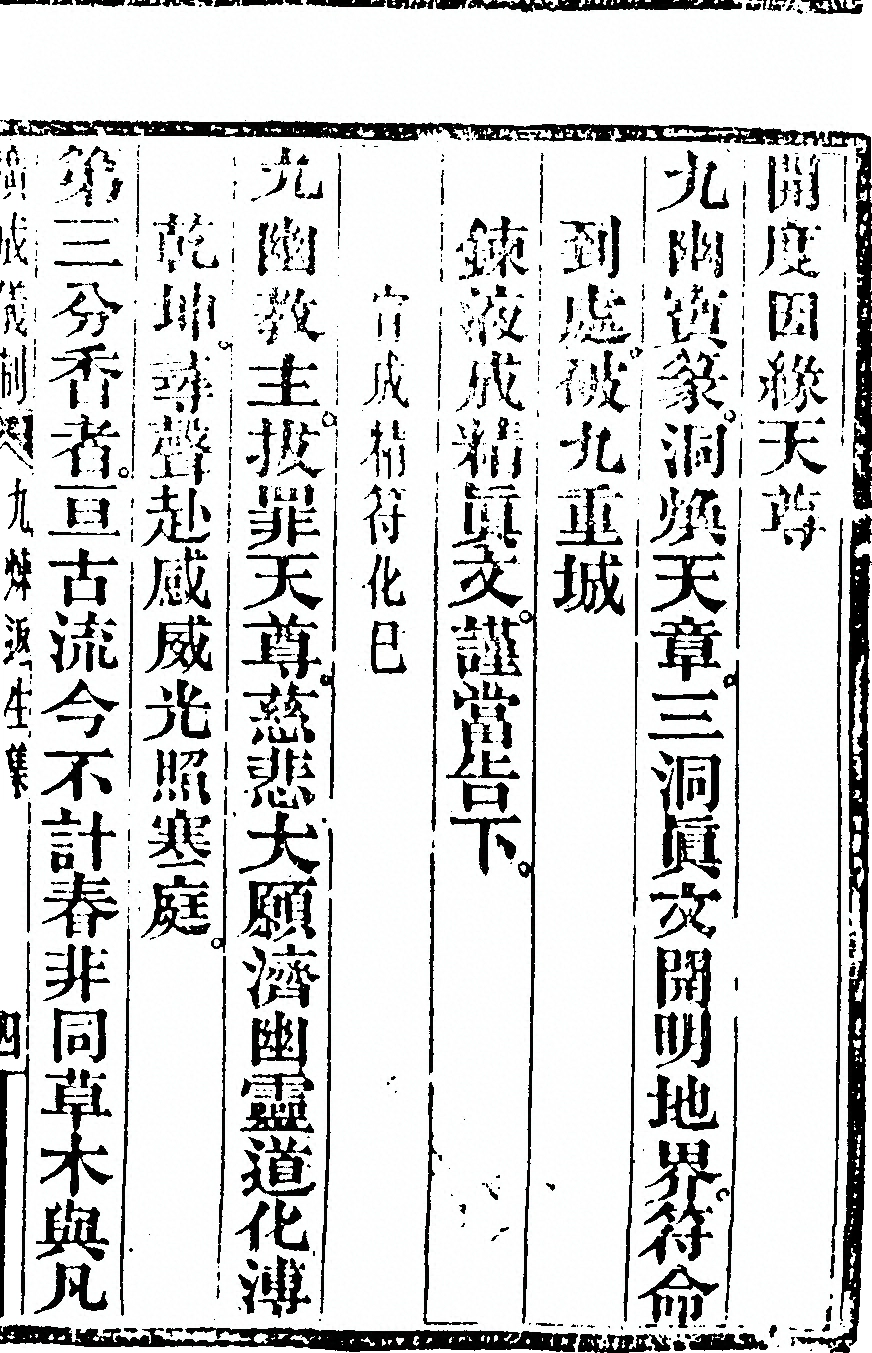 開度因緣天尊
九幽寶篆。洞煥天章。三洞眞文開明地界。符命
到處。破九重城
鍊液成精眞文。謹當告下。
宣成精符化巳
九幽教主。拔罪天尊。慈悲大願濟幽靈道化溥
乾坤。尋聲赴感威光照寒庭。
第三分香者。亘古流今不計春非同草木與凡
廣成儀制 九煉返生集 四